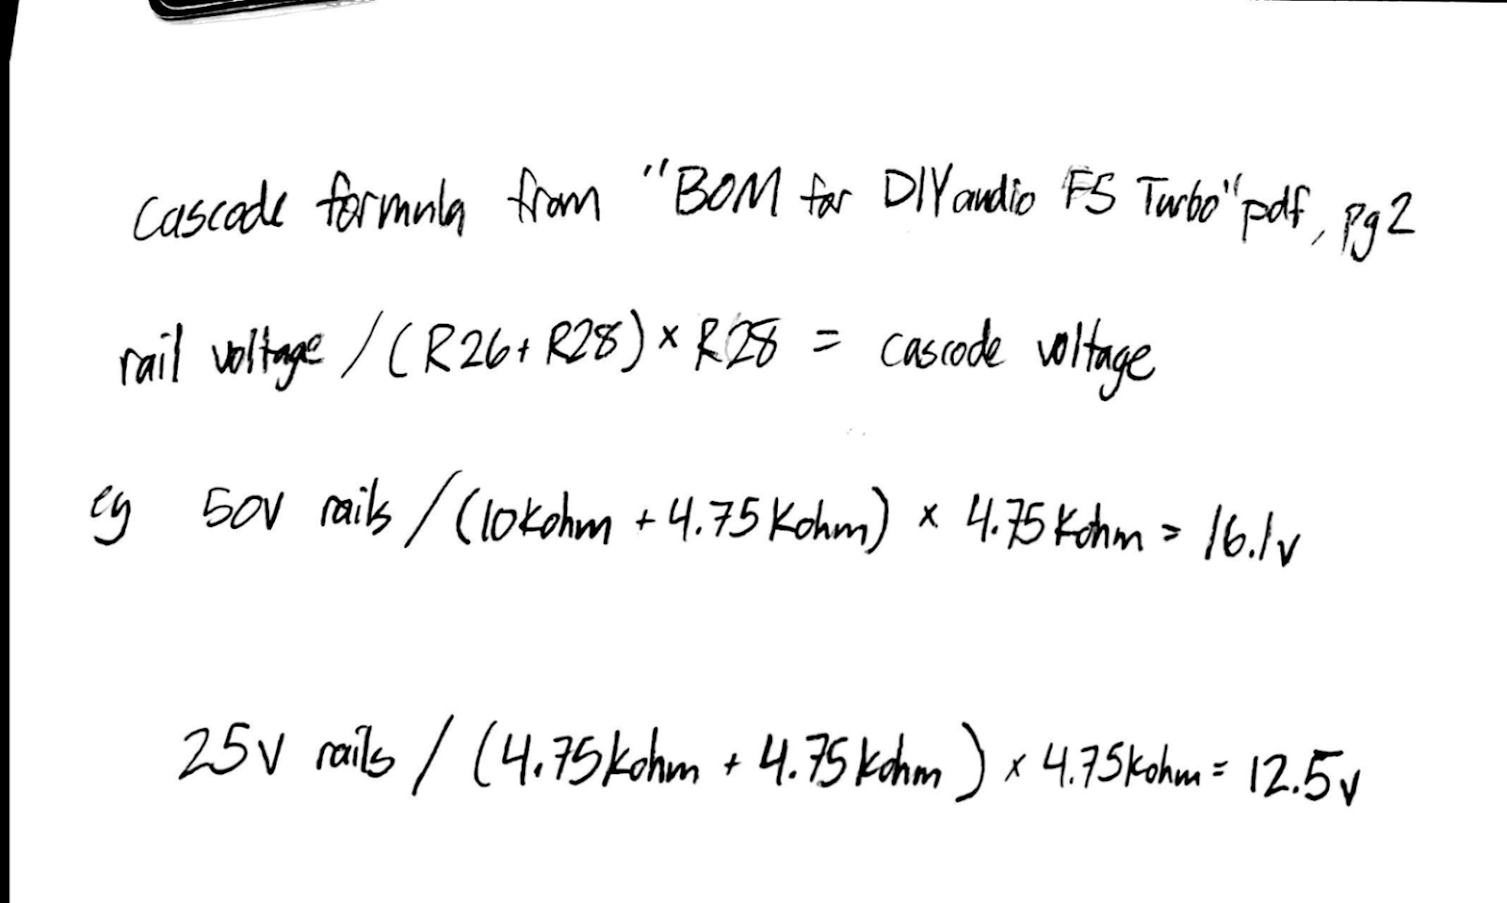 Cascode formula from "BOM for DIYaudio F5 Turbo" pdf, pg 2
rail voltage / (R26 + R28) × R28 = cascode voltage
eg 50v rails / (10kohm + 4.75Kohm) × 4.75Kohm = 16.1v
25v rails / (4.75kohm + 4.75kohm) × 4.75kohm = 12.5v